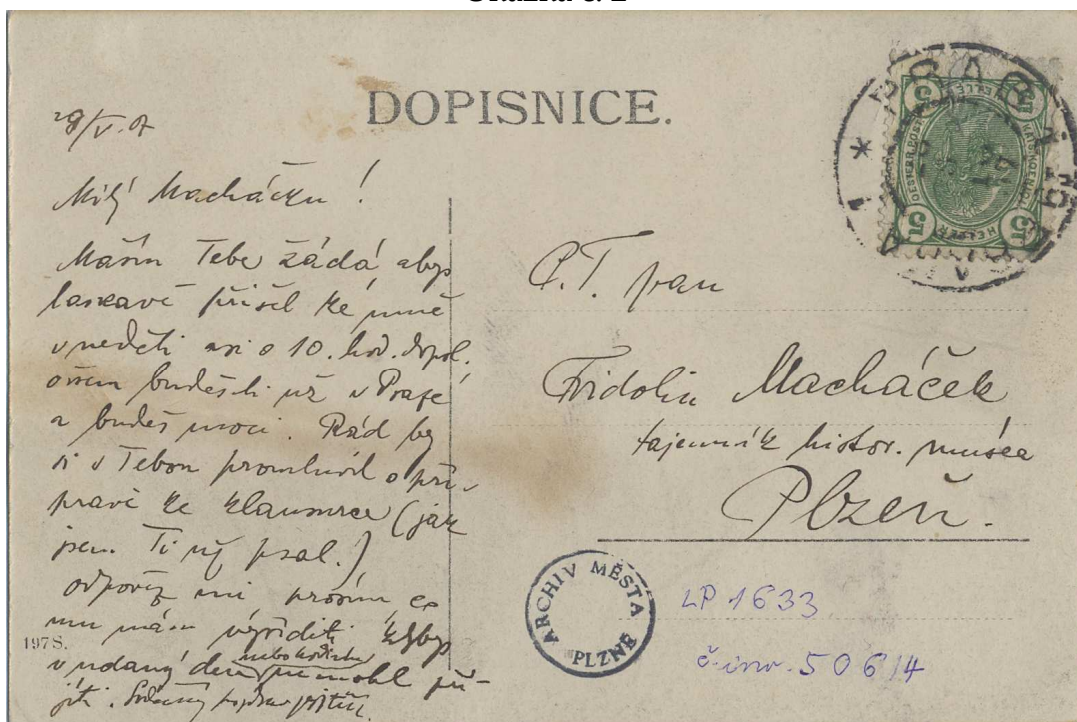 DOPISNICE.
29/V. 07
Milý Macháčku!
Mašín Tebe žádá, abys
laskavě přišel ke mně
v neděli asi o 10. hod. dopol.
ovšem budeš-li už v Praze
a budeš moci. Rád by
si s Tebou promluvil o pří-
pravě ke klausurce (jak
jsem Ti již psal.)
odpověz mi prosím, co
mu mám vyříditi kdybys
v udaný den nebo hodinu nemohl při-
jíti. Srdečný pozdrav
197S.
P.T. pan
Fridolin Macháček
tajemník histor. musea
Plzeň.
ARCHIV MĚSTA
PLZNĚ
LP 1633
č. inv. 506/4
5 HELLER 5
5 5